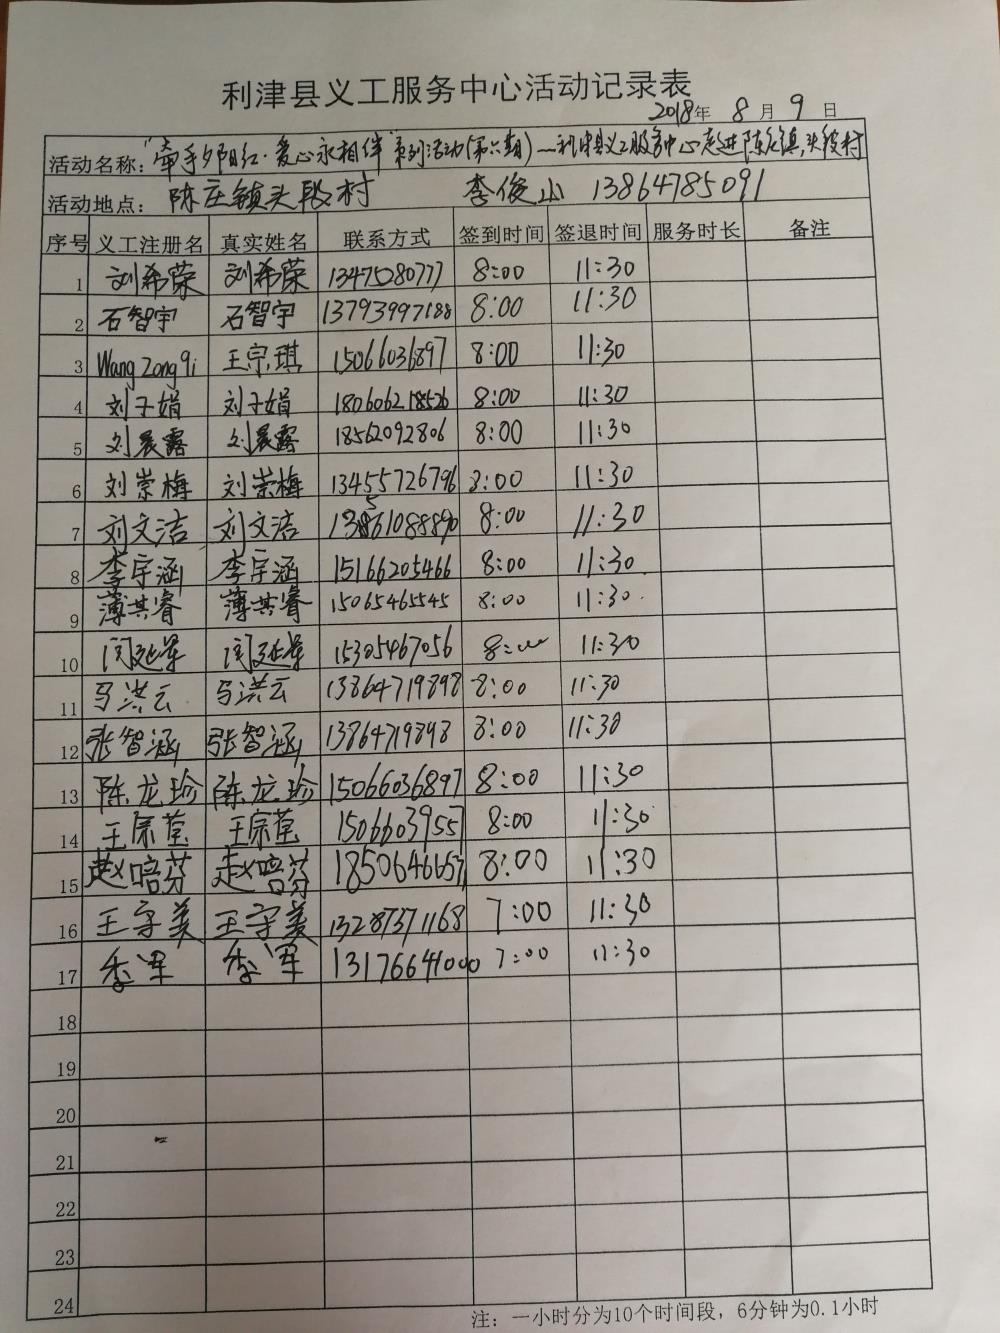 利津县义工服务中心活动记录表
2018年 8月 9日
活动名称："牵手夕阳红·爱心永相伴"系列活动(第六期)—利津县义工服务中心走进陈庄镇头段村
活动地点：陈庄镇头段村 李俊山 13864785091
序号 义工注册名 真实姓名 联系方式 签到时间 签退时间 服务时长 备注
1 刘希荣 刘希荣 13475080777 8:00 11:30
2 石智宇 石智宇 13793997188 8:00 11:30
3 Wang Zong qi 王宗琪 15066036897 8:00 11:30
4 刘子娟 刘子娟 180606218526 8:00 11:30
5 刘晨露 刘晨露 18562092806 8:00 11:30
6 刘崇梅 刘崇梅 13455726796 8:00 11:30
7 刘文洁 刘文洁 8:00 11:30
8 李宇涵 李宇涵 15166205466 8:00 11:30
9 薄其睿 薄其睿 15065465545 8:00 11:30
10 闫延军 闫延军 15305467056 8:00 11:30
11 马洪云 马洪云 13864719898 8:00 11:30
12 张智涵 张智涵 13864719898 8:00 11:30
13 陈龙珍 陈龙珍 15066036897 8:00 11:30
14 王宗莹 王宗莹 15066039557 8:00 11:30
15 赵芬 赵芬 18506466571 8:00 11:30
16 王守美 王守美 13287371168 7:00 11:30
17 李军 李军 13176641000 7:00 11:30
18
19
20
21
22
23
24
注：一小时分为10个时间段，6分钟为0.1小时